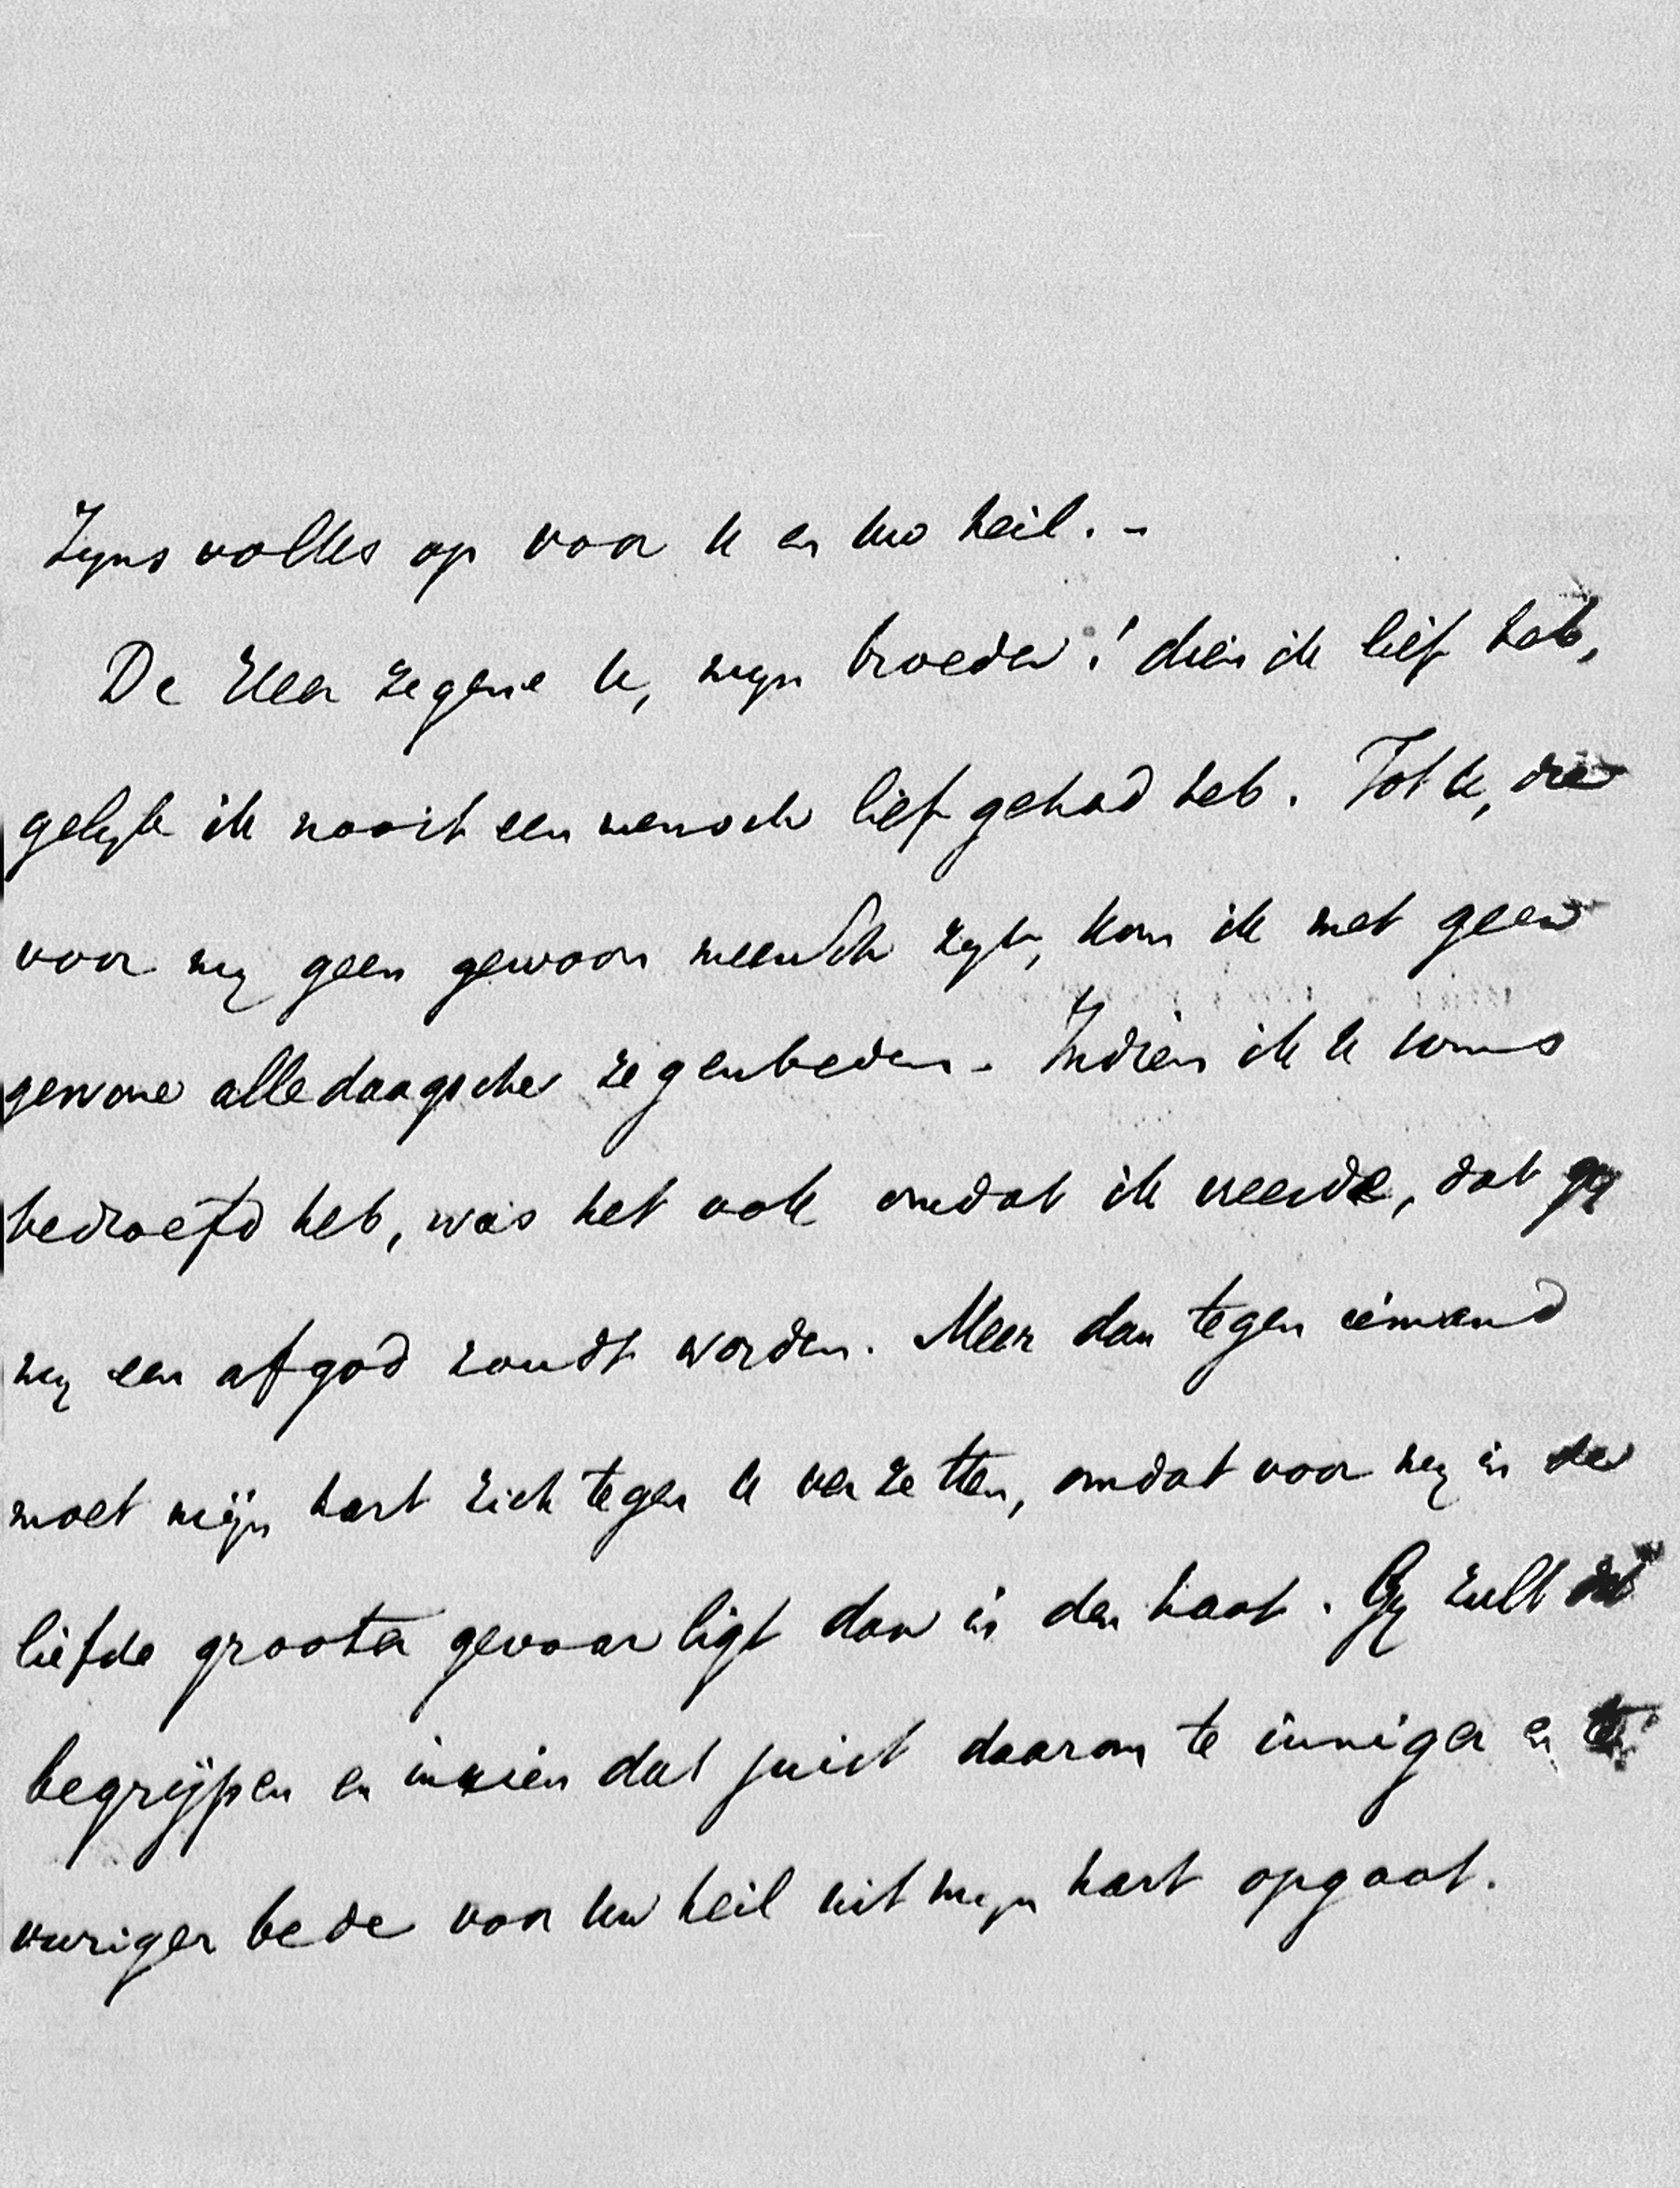 Zyns volks op voor U en Uw heil. -
De Heer zegene U, myn broeder! dien ik lief heb,
gelyk ik nooit een mensch lief gehad heb. Tot U, die
voor my geen gewoon meensch zyt, kom ik met geen
gewone alledaagsche zegenbeden. - Indien ik U soms
bedroefd heb, was het ook omdat ik vreesde, dat gy
my een afgod zoudt worden. Meer dan tegen iemand
moet mijn hart zich tegen U verzetten, omdat voor my in de
liefde grooter gevaar ligt dan in den haat. Gy zult
begrijpen en inzien dat juist daarom te inniger en te
vuriger bede voor Uw heil uit myn hart opgaat.